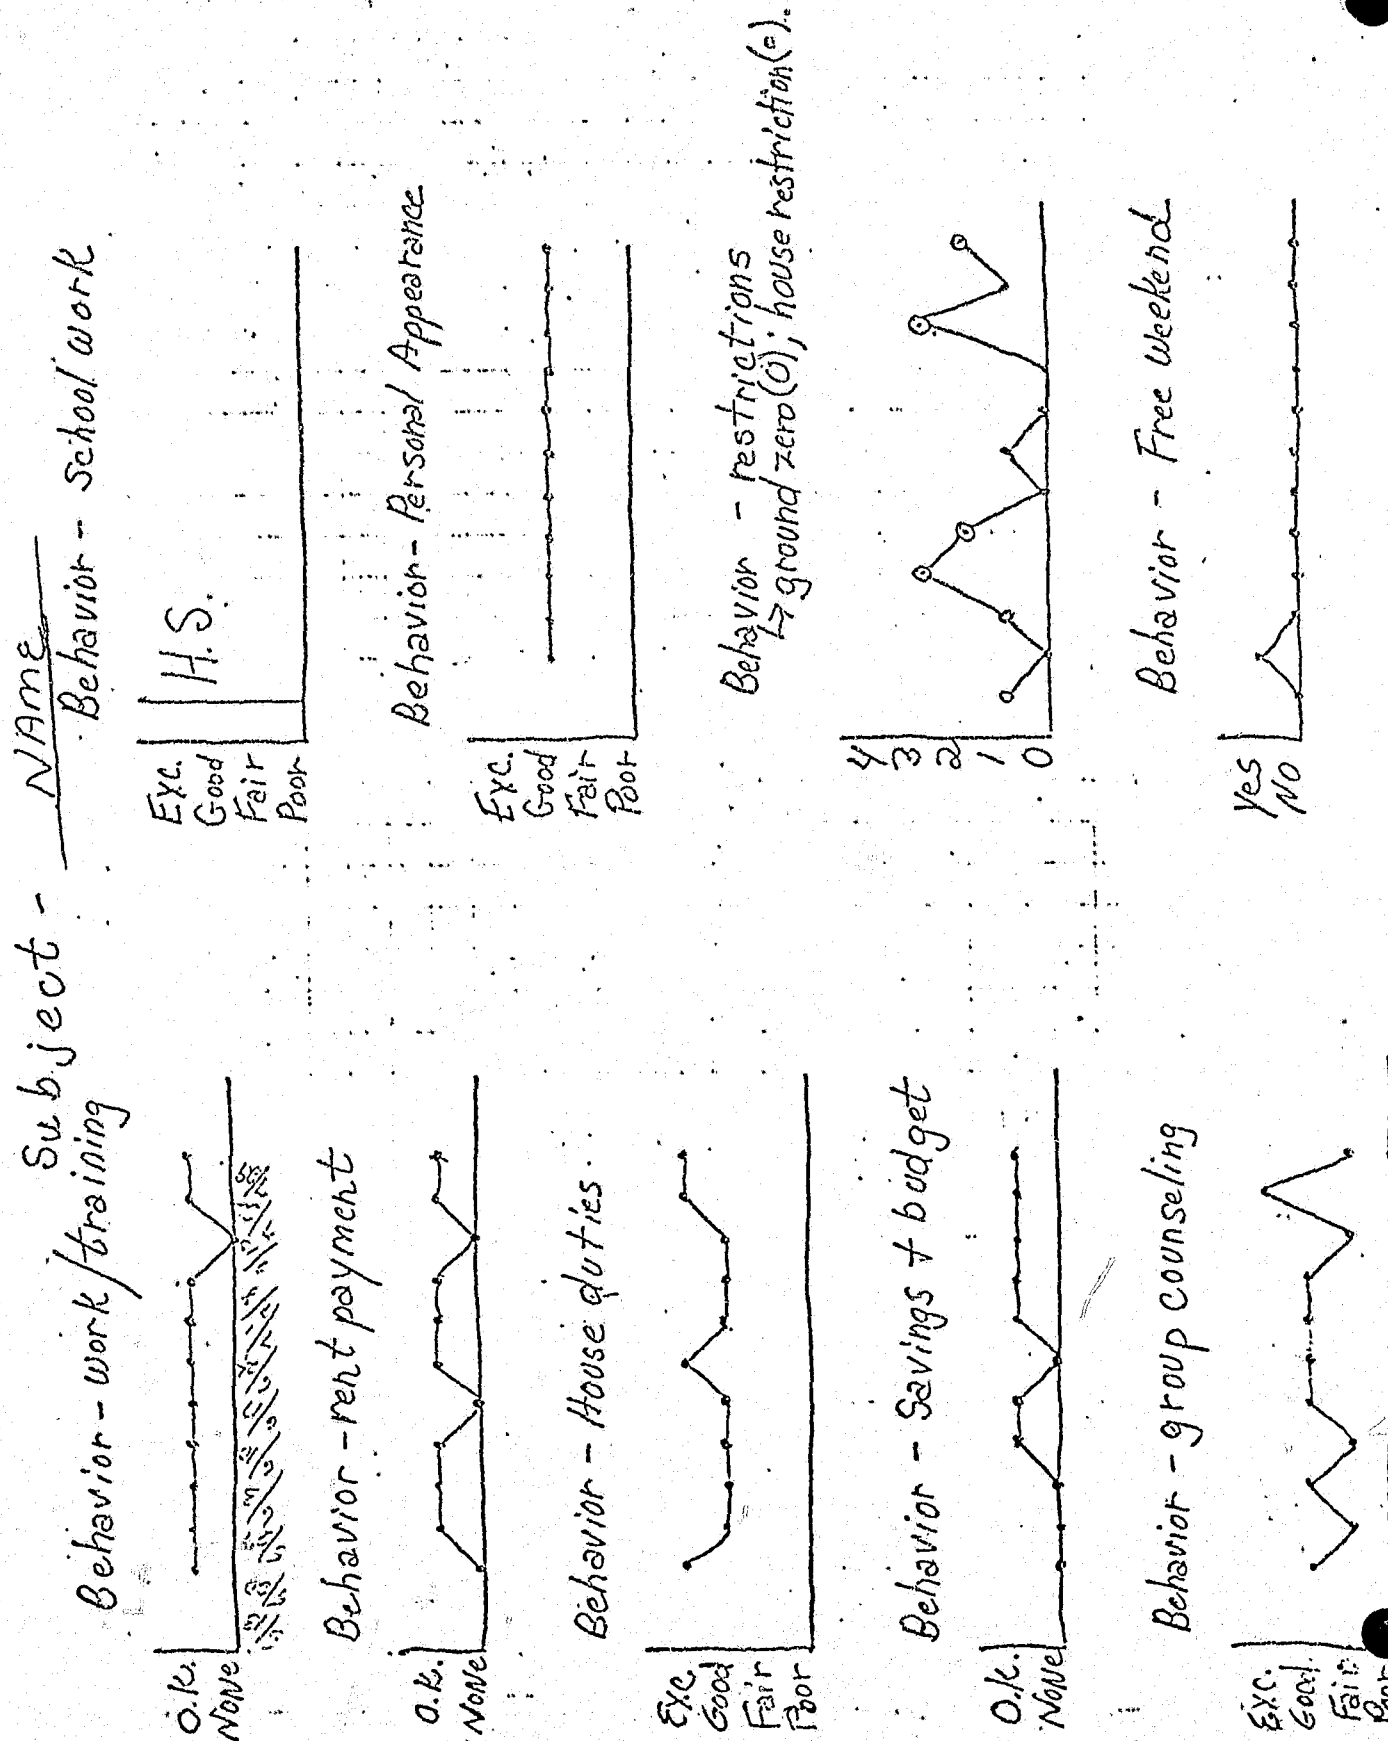 Subject - NAme
Behavior - work/training
O.K.
NONe
Behavior - rent payment
O.K.
NONe
Behavior - House duties.
Exc.
Good
Fair
Poor
Behavior - Savings + budget
O.K.
NONe
Behavior - group counseling
Exc.
Good.
Fair
Poor
Behavior - School work
Exc.
Good
Fair
Poor
H.S.
Behavior - Personal Appearance
Exc.
Good
Fair
Poor
Behavior - restrictions
↳ ground zero(0); house restriction(o).
4
3
2
1
0
Behavior - Free Weekend
Yes
NO